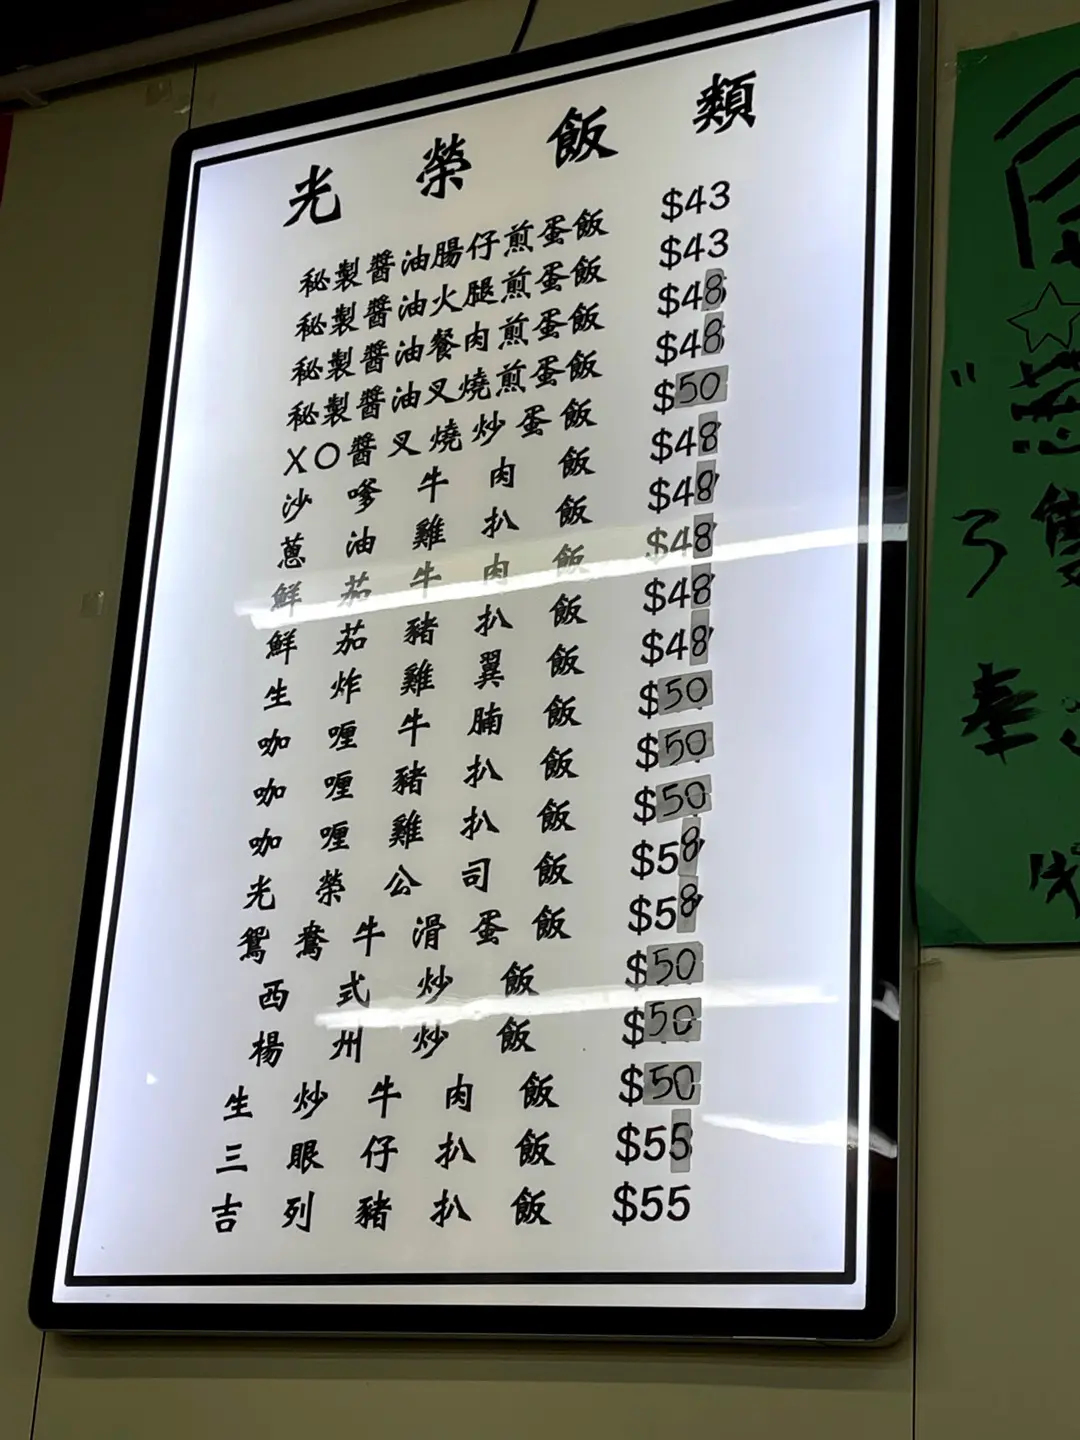 光榮飯類
秘製醬油腸仔煎蛋飯 $43
秘製醬油火腿煎蛋飯 $43
秘製醬油餐肉煎蛋飯 $48
秘製醬油叉燒煎蛋飯 $48
XO醬叉燒炒蛋飯 $50
沙嗲牛肉飯 $48
蔥油雞扒飯 $48
鮮茄牛肉飯 $48
鮮茄豬扒飯 $48
生炸雞翼飯 $48
咖喱牛腩飯 $50
咖喱豬扒飯 $50
咖喱雞扒飯 $50
光榮公司飯 $58
鴛鴦牛滑蛋飯 $58
西式炒飯 $50
楊州炒飯 $50
生炒牛肉飯 $50
三眼仔扒飯 $55
吉列豬扒飯 $55